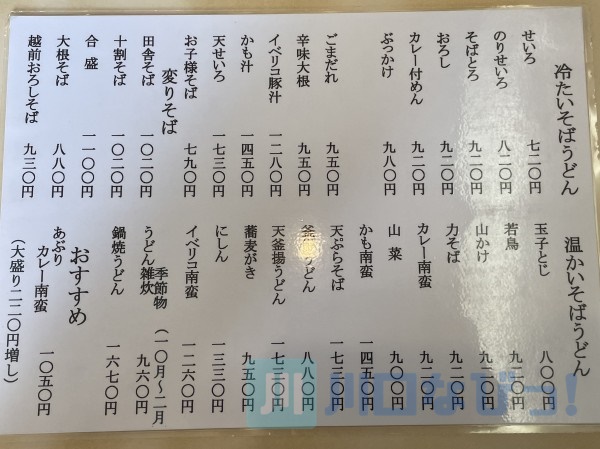 冷たいそばうどん
せいろ 七二〇円
のりせいろ 八二〇円
そばとろ 九二〇円
おろし 九二〇円
カレー付めん 九二〇円
ぶっかけ 九八〇円
ごまだれ 九五〇円
辛味大根 九五〇円
イベリコ豚汁 一二八〇円
かも汁 一四五〇円
天せいろ 一七三〇円
お子様そば 七九〇円
変りそば
田舎そば 一〇二〇円
十割そば 一〇二〇円
合盛 一一〇〇円
大根そば 八八〇円
越前おろしそば 九三〇円
温かいそばうどん
玉子とじ 八〇〇円
若鳥 九二〇円
山かけ 九二〇円
力そば 九二〇円
カレー南蛮 九二〇円
山菜 九〇〇円
かも南蛮 一四五〇円
天ぷらそば 一七三〇円
釜揚うどん 八八〇円
天釜揚うどん 一七三〇円
蕎麦がき 九五〇円
にしん 一三三〇円
イベリコ南蛮 一二六〇円
季節物(一〇月〜二月
うどん雑炊 九六〇円
鍋焼うどん 一六七〇円
おすすめ
あぶり
カレー南蛮 一〇五〇円
(大盛り二二〇円増し)
川口なびっ!